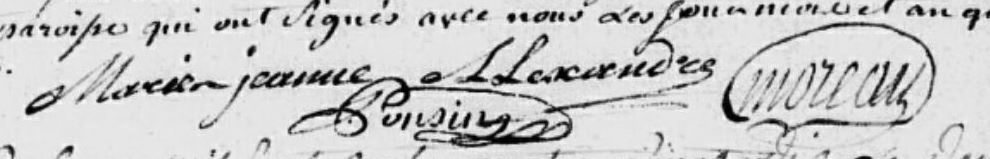 paroisse qui ont signés avec nous les jour mois et an qu
Marie jeanne Allexandre moreau
Ponsin